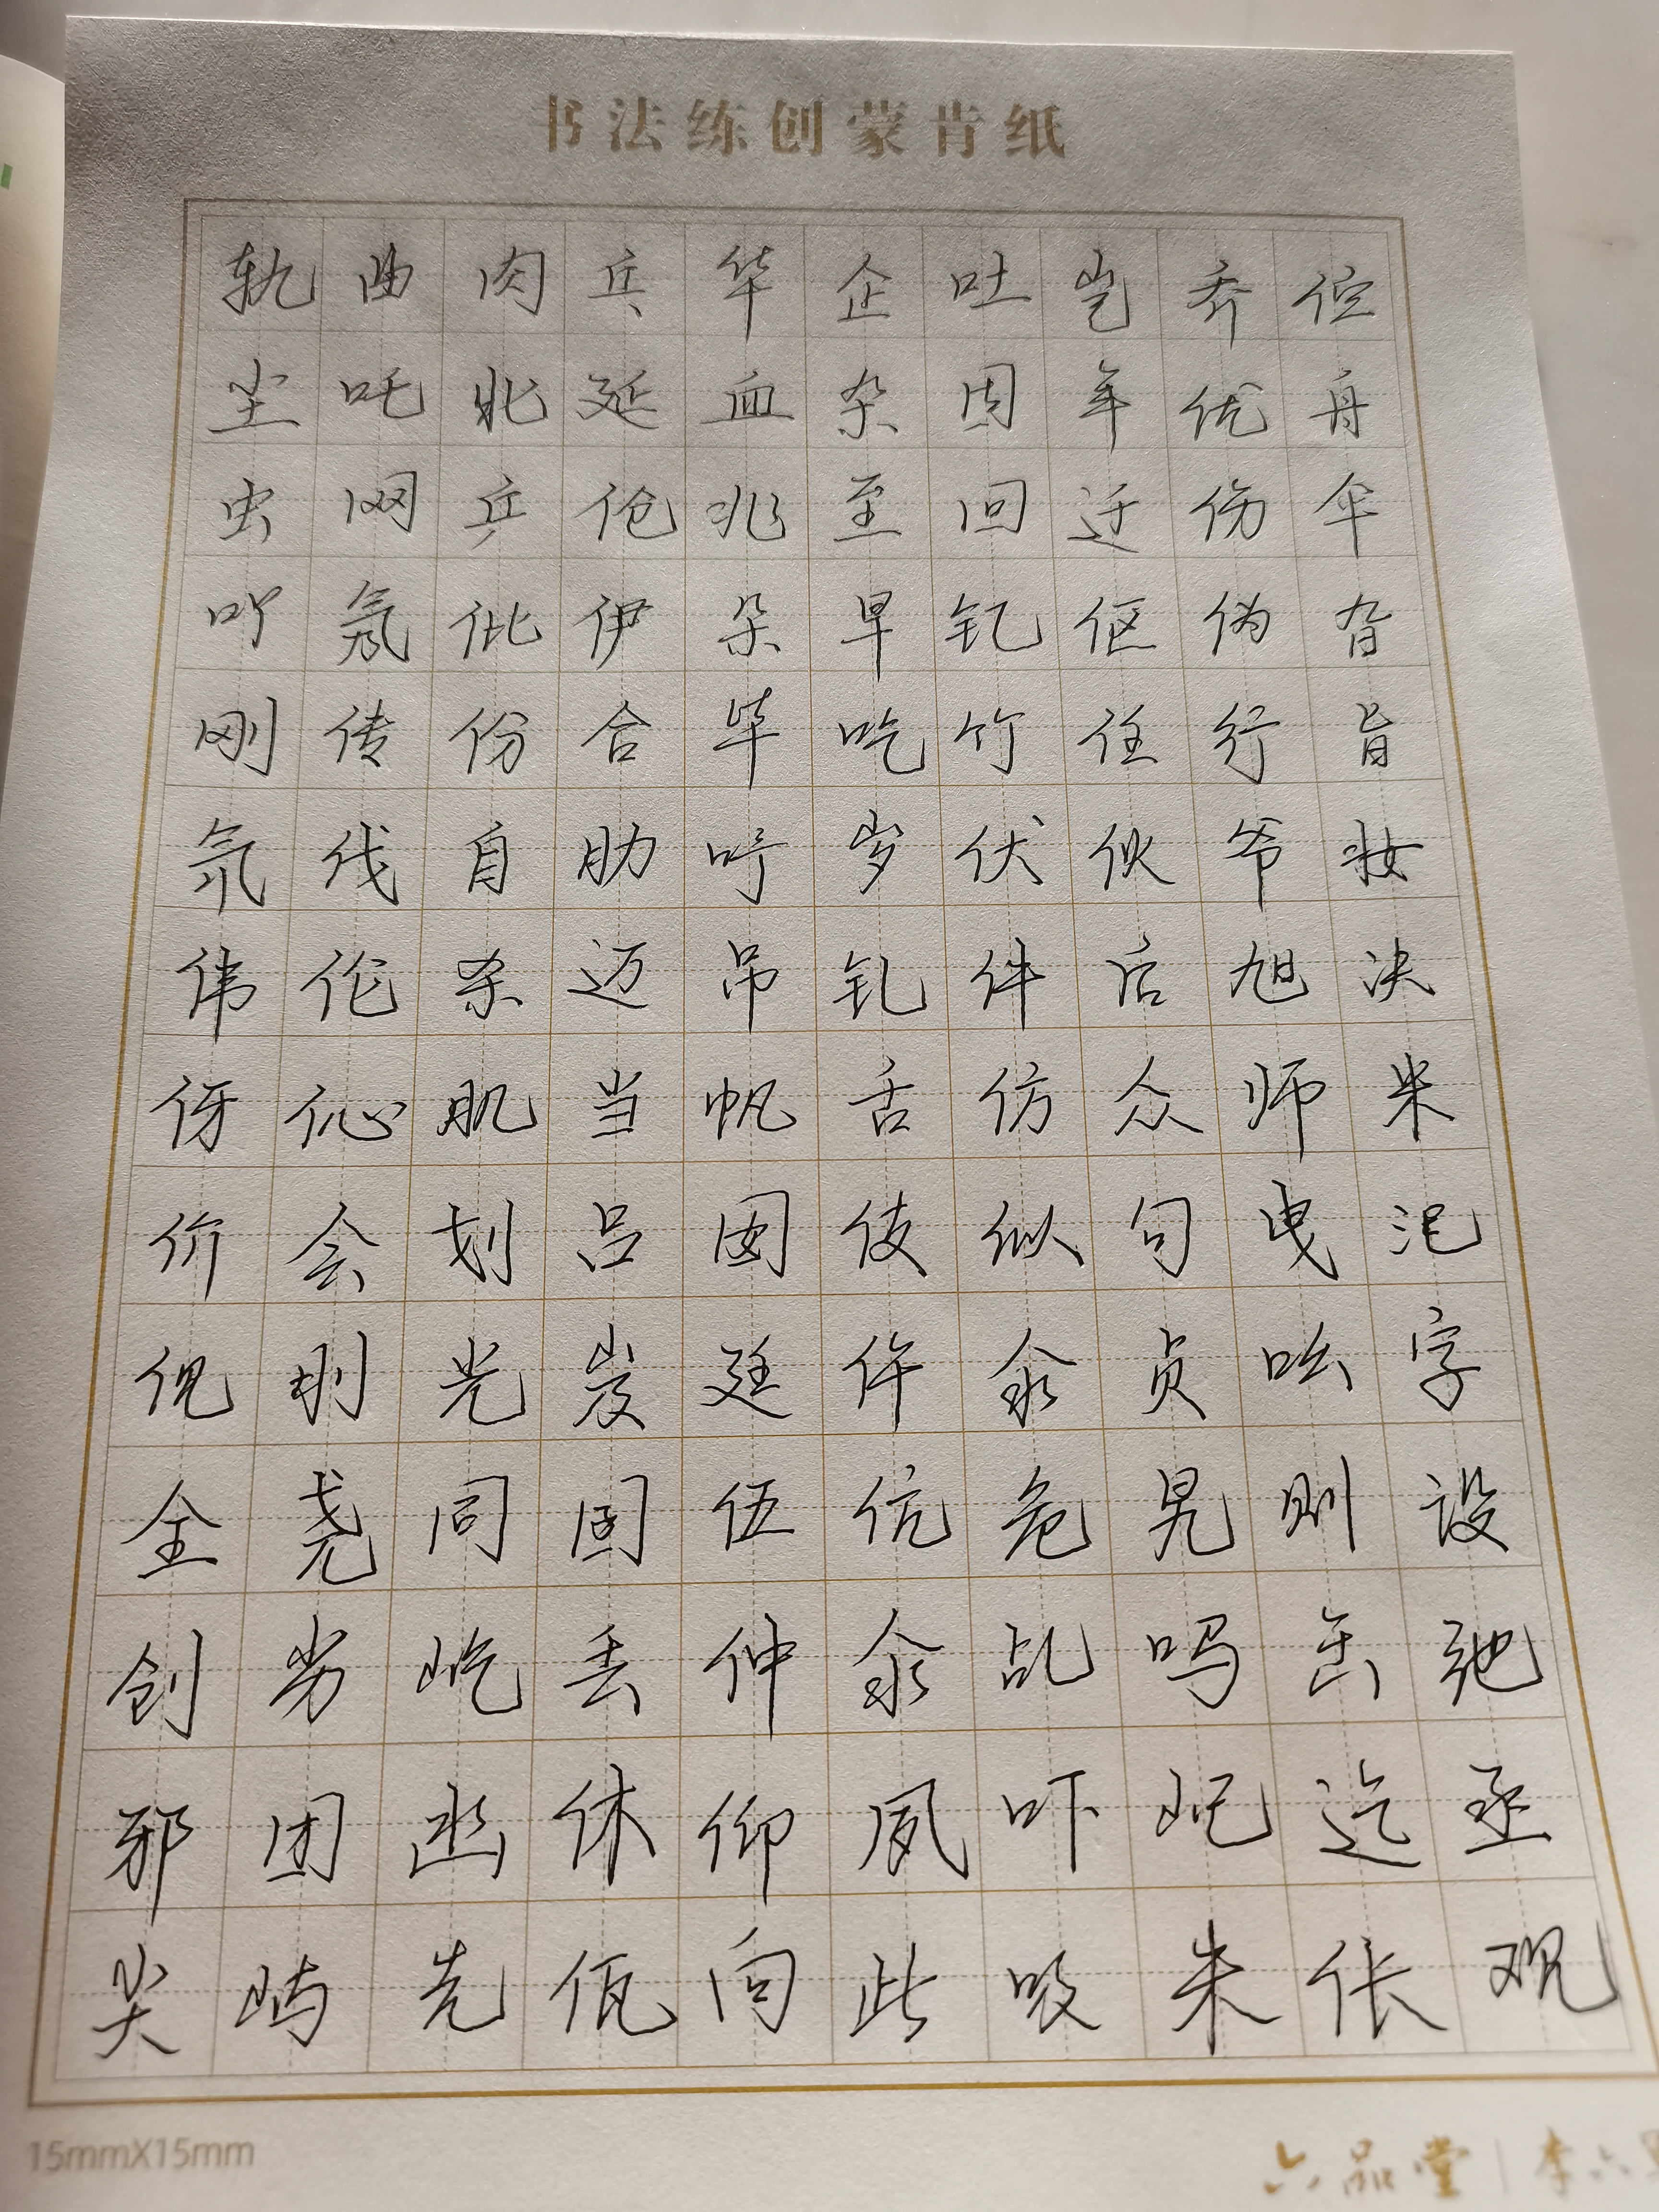 书法练创蒙肯纸
轨曲肉乒华企吐岂乔伫
尘吒兆延血杂因年优舟
虫网乒伧兆至回迁伤伞
吖氖仳伊朵早钇伛伪旮
刚传份合毕吃竹任行旨
氘伐自肋吁岁伏伙爷妆
伟伦杀迈吊钆件后旭决
伢伈肌当帆舌仿众师米
价会划吕囡伎似旬曳汜
伣刖光岌廷仵汆贞吆字
全尧同囝伍伉危旯则设
创岁屹丢仲汆乩吗缶弛
邪团凼休仰夙吓屺迄丞
尖屿先佤向此吸朱伥观
15mmX15mm
六品堂 | 李六